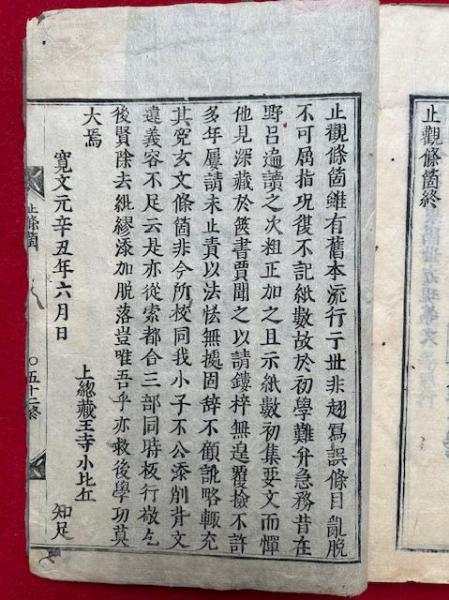 止觀條箇終
止觀條箇雖有舊本流行于世非翅寫誤條目亂脫
不可屬指况復不記紙數故於初學難弁急務昔在
野呂遍讀之次粗正加之且示紙數初集要文而憚
他見深藏於篋書賈聞之以請鏤梓無遑覆撿不許
多年屢請未止責以法恡無據固辞不顧訛略輙充
其㝎玄文條箇非今所校同我小子不公添削背文
違義容不足云是亦從索都合三部同時板行敬乞
後賢除去紕繆添加脱落豈唯吾乎亦救後學功莫
大焉
寬文元辛丑年六月日
上總藏王寺小比丘
知足
止條箇
〇五十二終